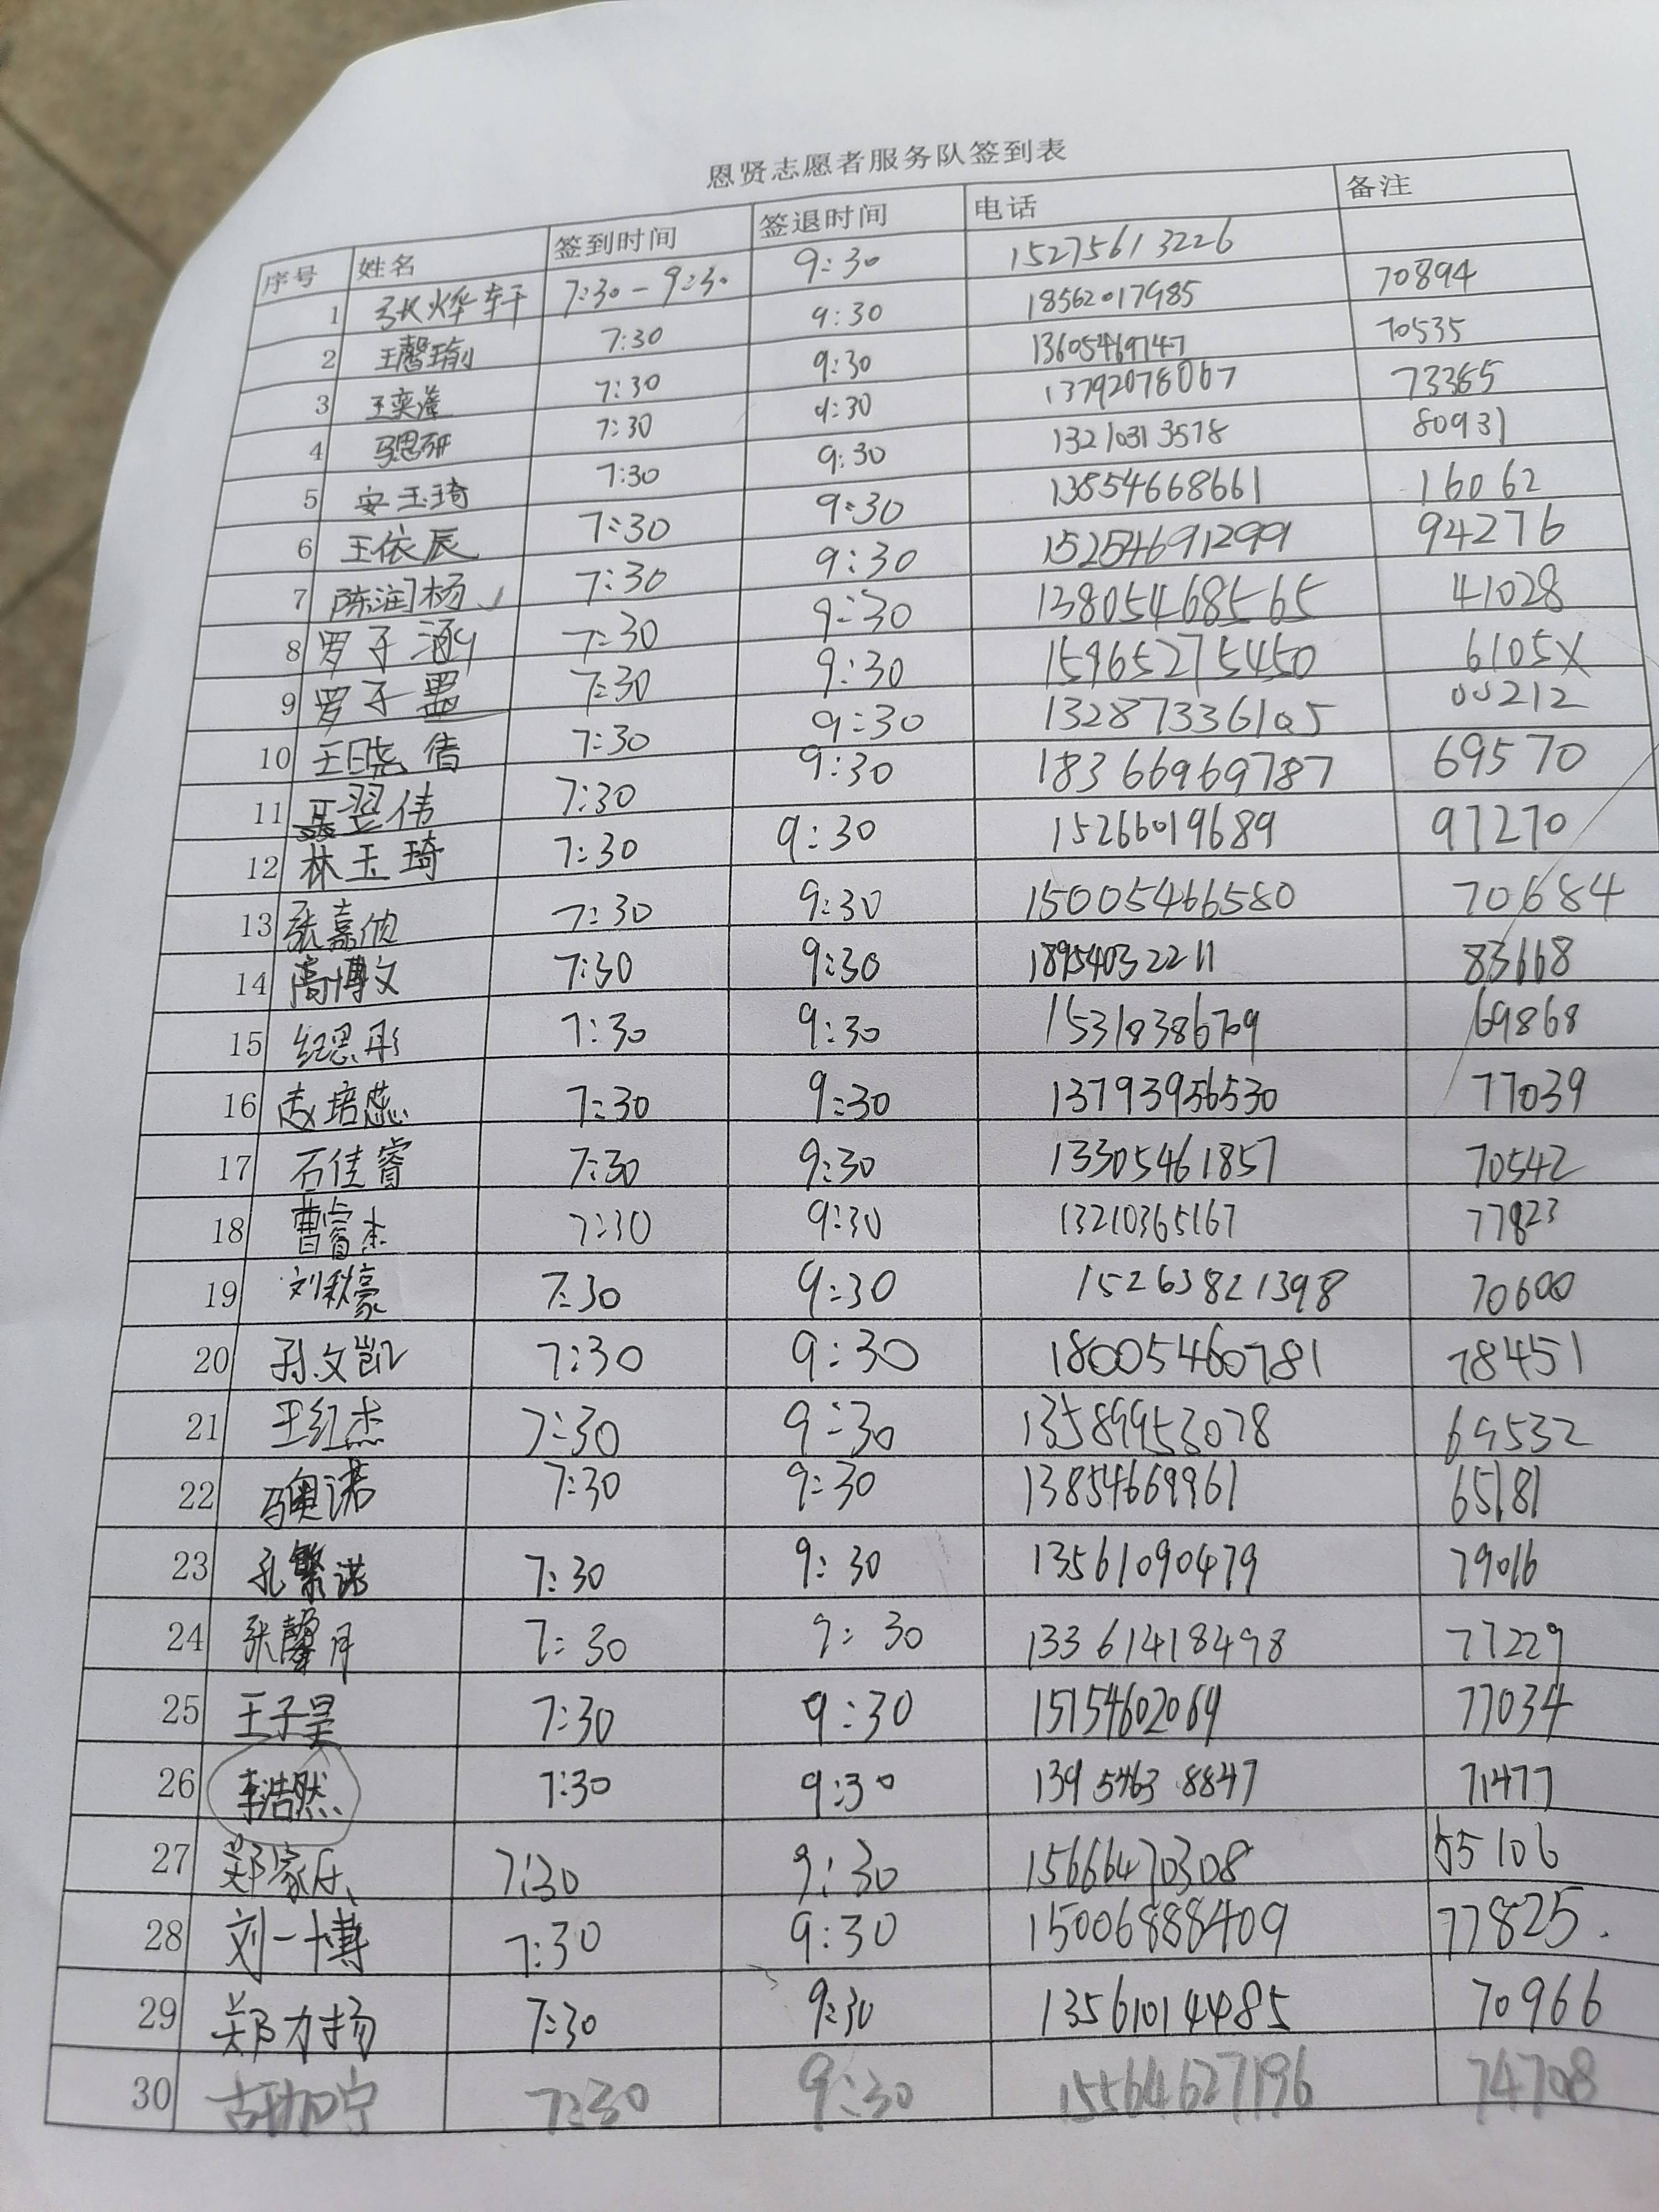 恩贤志愿者服务队签到表
序号 姓名 签到时间 签退时间 电话 备注
1 张烨轩 7:30-9:30 9:30 15275613226
2 王馨瑜 7:30 9:30 18562017985 70894
3 王奕潼 7:30 9:30 13605469747 70535
4 马思研 7:30 9:30 13792078067 73365
5 安玉琦 7:30 9:30 13210313578 80931
6 王依辰 7:30 9:30 13854668661 16062
7 陈润杨 7:30 9:30 15254691299 94276
8 罗子涵 7:30 9:30 13805468565 41028
9 罗子墨 7:30 9:30 15965275450 6105X
10 王晓倩 7:30 9:30 13287336105 00212
11 聂翌伟 7:30 9:30 18366969787 69570
12 林玉琦 7:30 9:30 15266019689 97270
13 张嘉欣 7:30 9:30 15005466580 70684
14 高博文 7:30 9:30 18954032211 83668
15 纪思彤 7:30 9:30 15318386709 69868
16 赵培蕊 7:30 9:30 13793956530 77039
17 石佳睿 7:30 9:30 13305461857 70542
18 曹睿杰 7:30 9:30 13210365167 77823
19 刘秋豪 7:30 9:30 15263821398 70600
20 孙文凯 7:30 9:30 18005460781 78451
21 王红杰 7:30 9:30 13589953078 69532
22 马奥诺 7:30 9:30 13854669961 65181
23 孔繁诺 7:30 9:30 13561090479 79016
24 张馨月 7:30 9:30 13361418498 77229
25 王子昊 7:30 9:30 15154602064 77034
26 李浩然 7:30 9:30 13954638847 71477
27 郑家乐 7:30 9:30 15666470308 55106
28 刘一博 7:30 9:30 15006888409 77825.
29 郑力扬 7:30 9:30 13561014485 70966
30 胡加宁 7:30 9:30 15564627196 74708